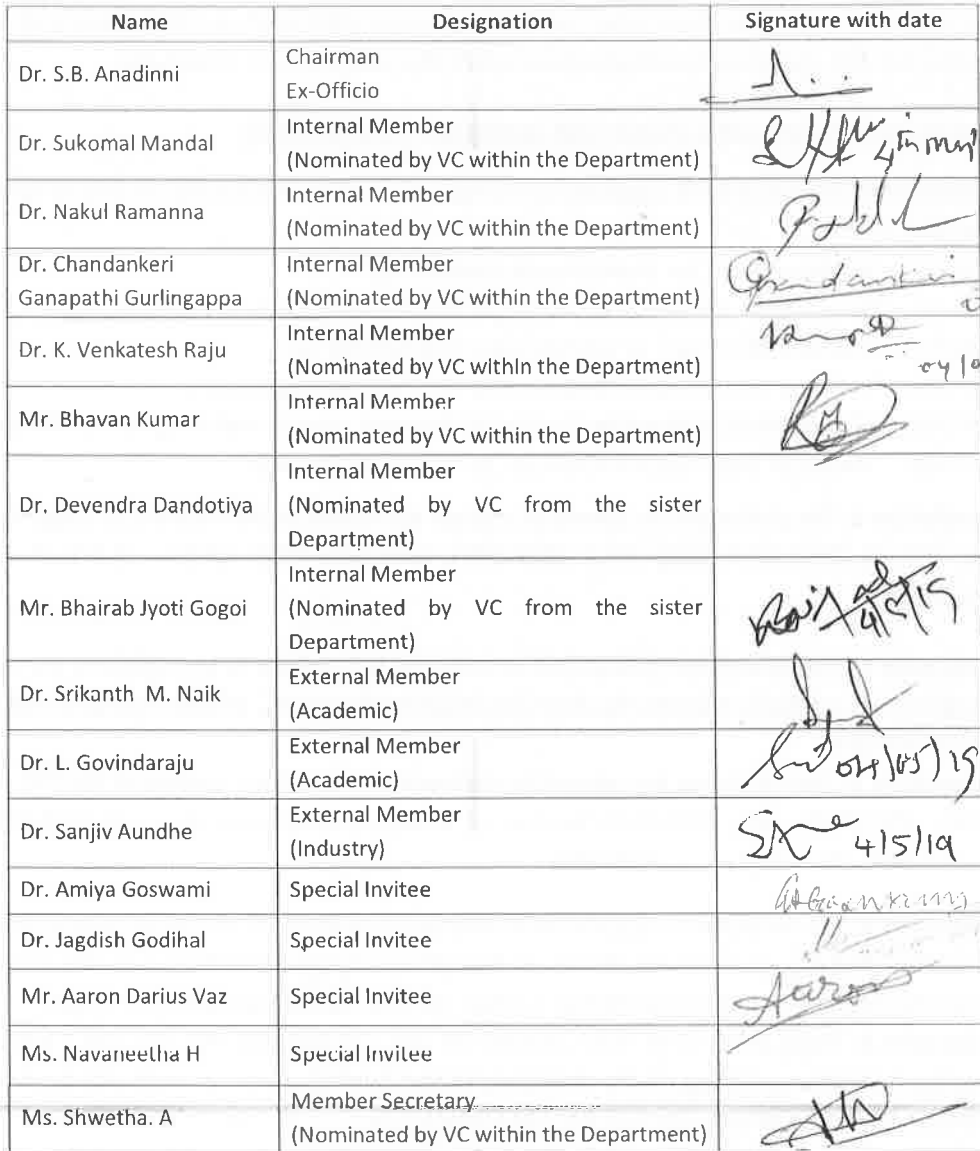 Name Designation Signature with date
Dr. S.B. Anadinni
Chairman
Ex-Officio
Dr. Sukomal Mandal
Internal Member
(Nominated by VC within the Department)
4th may
Dr. Nakul Ramanna
Internal Member
(Nominated by VC within the Department)
Dr. Chandankeri
Ganapathi Gurlingappa
Internal Member
(Nominated by VC within the Department)
Dr. K. Venkatesh Raju
Internal Member
(Nominated by VC within the Department)
Mr. Bhavan Kumar
Internal Member
(Nominated by VC within the Department)
Dr. Devendra Dandotiya
Internal Member
(Nominated by VC from the sister
Department)
Mr. Bhairab Jyoti Gogoi
Internal Member
(Nominated by VC from the sister
Department)
4/5/19
Dr. Srikanth M. Naik
External Member
(Academic)
Dr. L. Govindaraju
External Member
(Academic)
04/05/19
Dr. Sanjiv Aundhe
External Member
(Industry)
4/5/19
Dr. Amiya Goswami Special Invitee
Dr. Jagdish Godihal Special Invitee
Mr. Aaron Darius Vaz Special Invitee
Aaron
Ms. Navaneetha H Special Invitee
Ms. Shwetha. A
Member Secretary
(Nominated by VC within the Department)